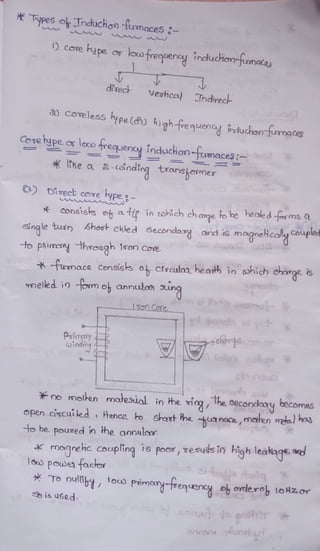 * Types of Induction furnaces :-
1) core type or low frequency induction furnaces
direct vertical Indirect
2) coreless type (or) high frequency induction furnaces
Core type or low frequency induction furnaces :-
* like a 2-winding transformer
Direct core type :-
* consists of a t/f in which charge to be heated forms a
single turn short ckted secondary and is magnetically coupled
to primary through iron core
* furnace consists of circular hearth in which charge is
melted in form of annular ring
Iron Core
Primary
winding
charge
* no molten material in the ring, the secondary becomes
open circuited. Hence to start the furnace, molten metal has
to be poured in the annular
* magnetic coupling is poor, results in high leakage and
low power factor
* To nullify, low primary frequency of order of 10 Hz or
so is used.